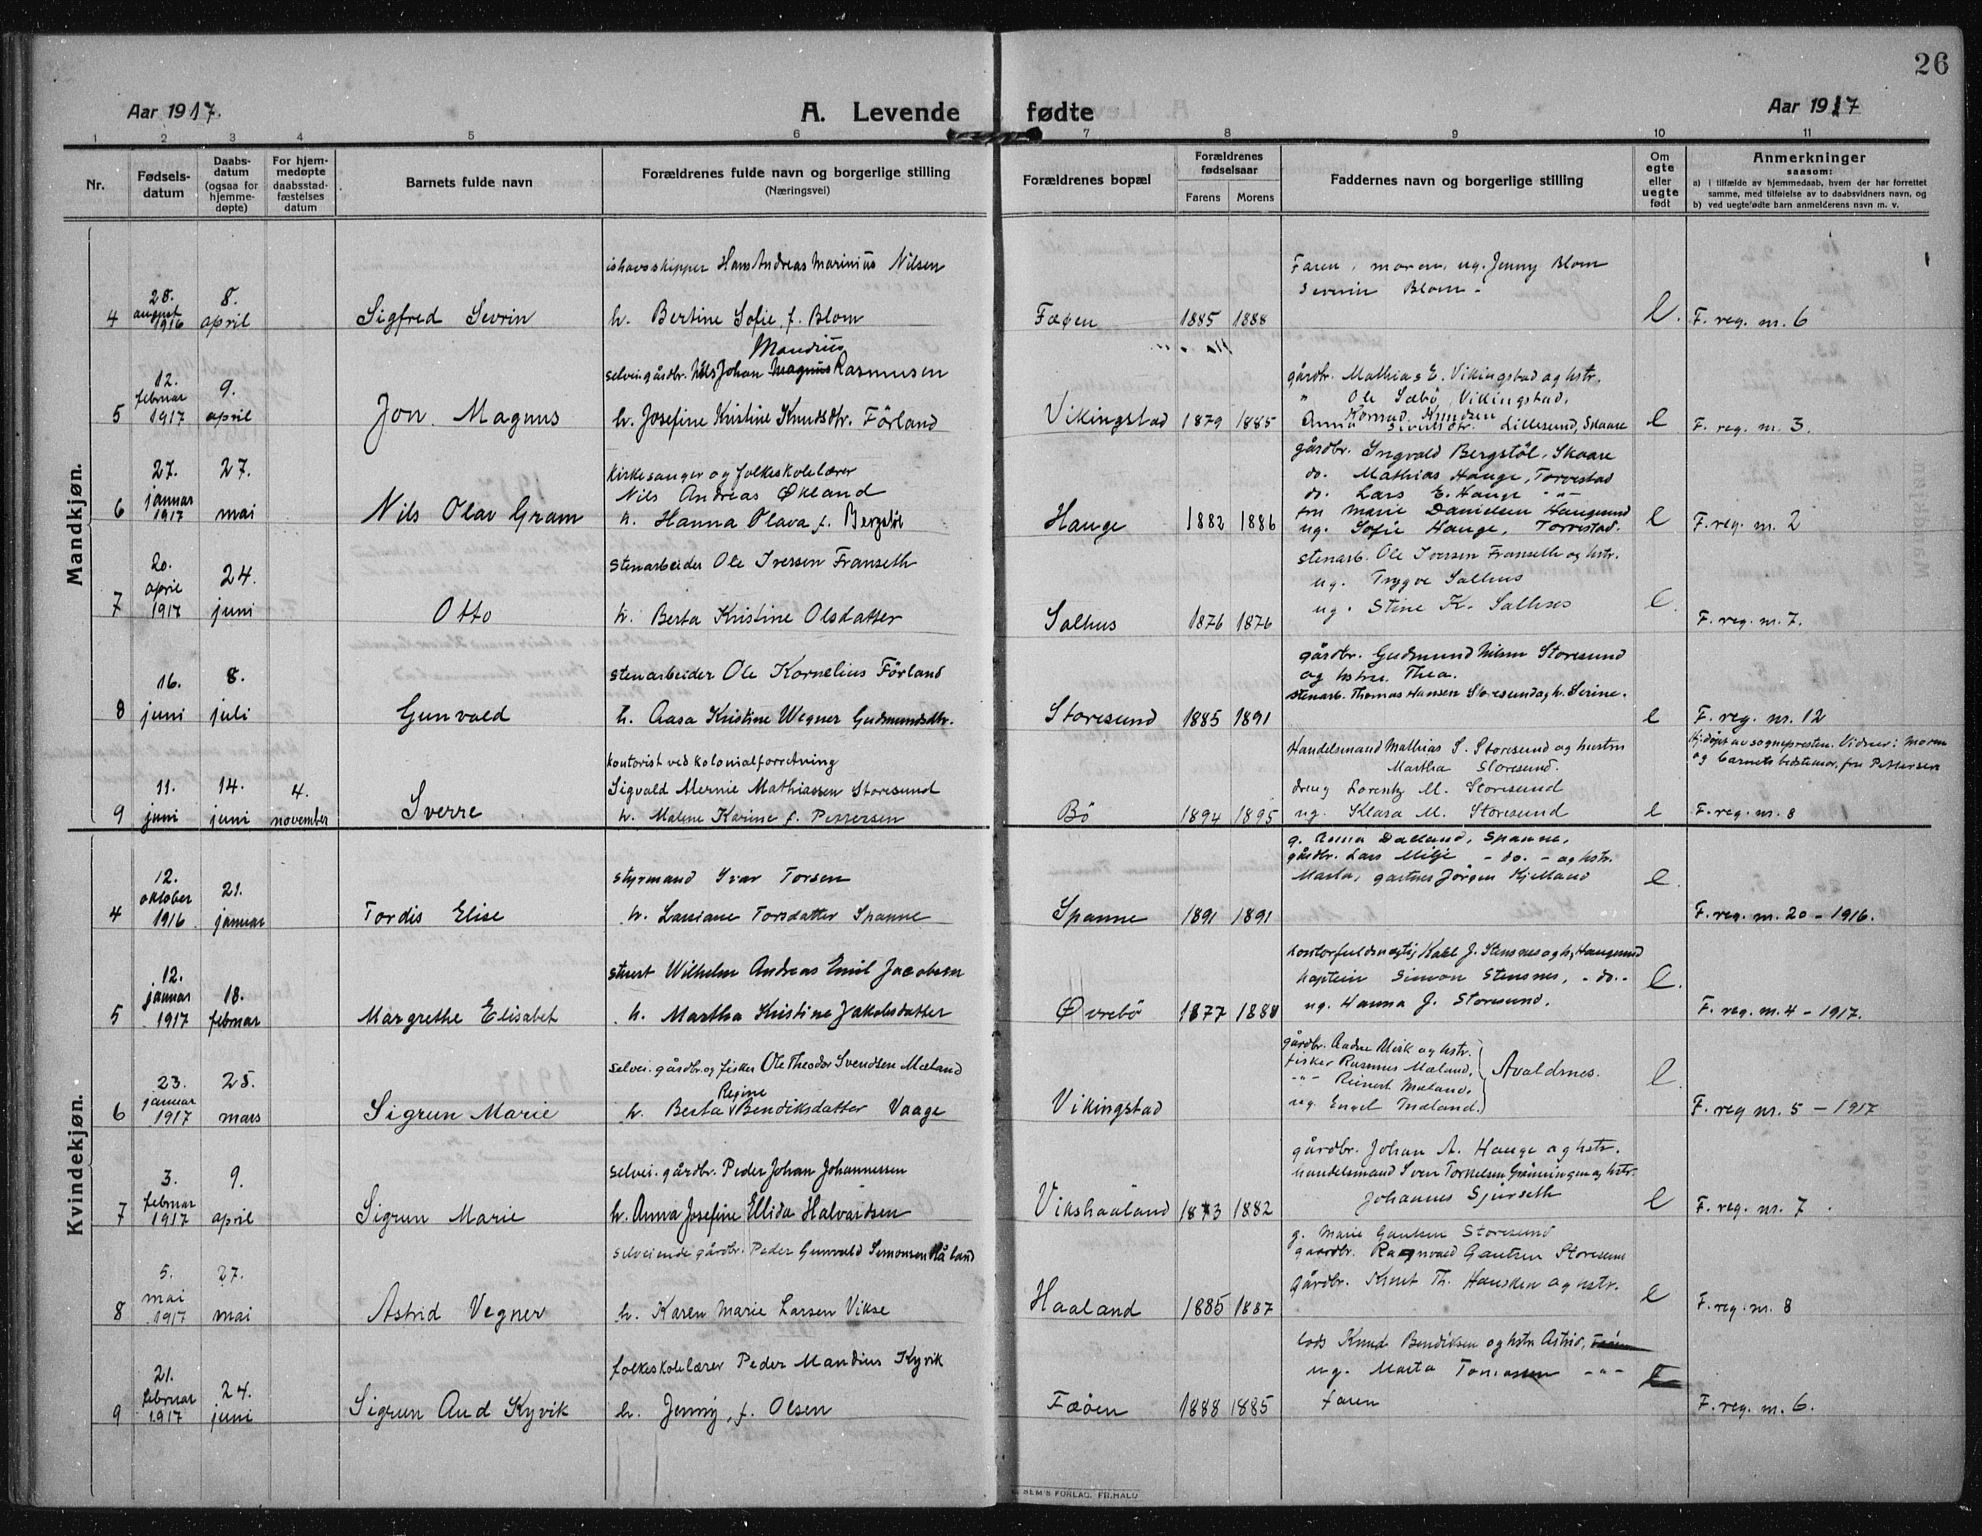 26
Aar 1917.
A. Levende fødte
Aar 1917
1 2 3 4 5 6 7 8 9 10 11
Nr.
Fødsels-
datum
Daabs-
datum
(ogsaa for
hjemme-
døpte)
For hjem-
medøpte
daabsstad-
fæstelses
datum
Barnets fulde navn
Forældrenes fulde navn og borgerlige stilling
(Næringsvei)
Forældrenes bopæl
Forældrenes
fødselsaar
Farens Morens
Faddernes navn og borgerlige stilling
Om
egte
eller
uegte
født
Anmerkninger
saasom:
a) i tilfælde av hjemmedaab, hvem der har forrettet
samme, med tilføielse av to daabsvidners navn, og
b) ved uegtefødte barn anmelderens navn m. v.
Mandkjøn.
4
28.
august
1916
8.
april
Sigfred Sevrin
ishavsskipper Hans Andreas Marinius Nilsen
h. Bertine Sofie, f. Blom
Fæøen
1885 1888
Faren, moren, ug. Jenny Blom
Severin Blom.
e.
F. reg. nr. 6
5
12.
februar
1917
9.
april
Jon Magnus
Mandius
selvei. gårdbr. Nils Johan Magnus Rasmusen
h. Josefine Kristine Knudsdtr. Förland
Vikingstad
1879 1885
gårdbr. Mathias E. Vikingstad og hstr.
" Ole Sæbö, Vikingstad,
Konrad Knudsen
Anna Sivertdtr. Lillesund, Skaare
e
F. reg. nr. 3.
6
27.
januar
1917
27.
mai
Nils Olav Gram
kirkesanger og folkeskolelærer
Nils Andreas Økland
h. Hanna Olava f. Bergstöl
Hauge
1882 1886
gårdbr. Ingvald Bergstöl, Skaare
do. Mathias Hauge, Torvestad
do. Lars E. Hauge -"-
fru Marie Danielsen Haugesund
ug. Sofie Hauge, Torvestad.
e
F. reg. nr. 2
7
20.
april
1917
24.
juni
Otto
stenarbeider Ole Iversen Franseth
h. Berta Kristine Olsdatter
Salhus
1876 1876
stenarb. Ole Iversen Franseth og hstr.
ug. Trygve Salhus
ug. Stine K. Salhus
e
F. reg. nr. 7.
8
16.
juni
8.
juli
Gunvald
stenarbeider Ole Kornelius Förland
h. Aasa Kristine Wegner Gudmundsdtr.
Storesund
1885 1891
gårdbr. Gudmund Nilsen Storesund
og hstru. Thea.
stenarb. Thomas Hansen Storesund og h. Serine.
e
F. reg. nr. 12
9
11.
juni
14.
juni
4.
november
Sverre
kontorist ved kolonialforretning
Sigvald Mernie Mathiassen Storesund
h. Malene Karine f. Pettersen
Bö
1894 1895
Handelsmand Mathias S. Storesund og hustru
Martha Storesund.
dreng Lorentz M. Storesund
ug. Klara M. Storesund
e
Hj.döpt av sognepresten. Vidner: Moren
og barnets bedstemor, fru Pettersen
F. reg. nr. 8
Kvindekjøn.
4
12.
oktober
1916
21.
januar
Tordis Elise
styrmand Ivar Torsen
h. Lassiane Torsdatter Spanne
Spanne
1891 1891
g. Anna Dalland, Spanne,
gårdbr. Lars Milje - do. - og hstr.
Marta, gartner Jörgen Kjelland
e.
F. reg. nr. 20 - 1916.
5
12.
januar
1917
18.
februar
Margrethe Elisabet
stuert Wilhelm Andreas Emil Jacobsen
h. Martha Kristine Jakobsdatter
Øvrebö
1877 1880
kontorfuldmægtig Karl J. Stensnes og h, Haugesund
kaptein Simon Stensnes, - do. -
ug. Hanna J. Storesund.
e.
F. reg. nr. 4 - 1917.
6
23.
januar
1917
25.
mars
Sigrun Marie
selvei. gårdbr. og fisker Ole Theodor Svendsen Mæland
Regine
h. Berta Bendiksdatter Vaage
Vikingstad
gårdbr. Aadne Misk og hstr.
fisker Rasmus Mæland,
-"- Reinert Mæland.
ug. Engel Mæland.
Avaldsnes.
e.
F. reg nr. 5 - 1917
7
3.
februar
1917
9.
april
Sigrun Marie
selvei. gårdbr. Peder Johan Johannessen
h. Anna Josefine Ellida Halvardsen
Vikshaaland
1873 1882
gårdbr. Johan A. Hauge og hstr.
handelsmand Sven Tornelsen Grönningen og hstr.
Johannes Sjurseth
e
F. reg. nr. 7.
8
5.
mai
1917
27.
mai
Astrid Vegner
selveiende gårdbr. Peder Gunvald Simonsen Håland
h. Karen Marie Larsen Vikse
Haaland
1885 1887
g. Marie Gautsen Storesund
gaardbr. Ragnvald Gautsen Storesund
Gårdbr. Knut Th. Hansken og hstr.
e
F. reg. nr. 8
9
21.
februar
1917
24.
juni
Sigrun Aud Kyvik
folkeskolelærer Peder Mandius Kyvik
h. Jenny, f. Olsen
Fæöen
1888 1885
lods Knud Bendiksen og hstr. Astrid,
ug. Marta Tomassen -"-
faren
F. reg. nr. 6.
SEM'S FORLAG. FR.HALD